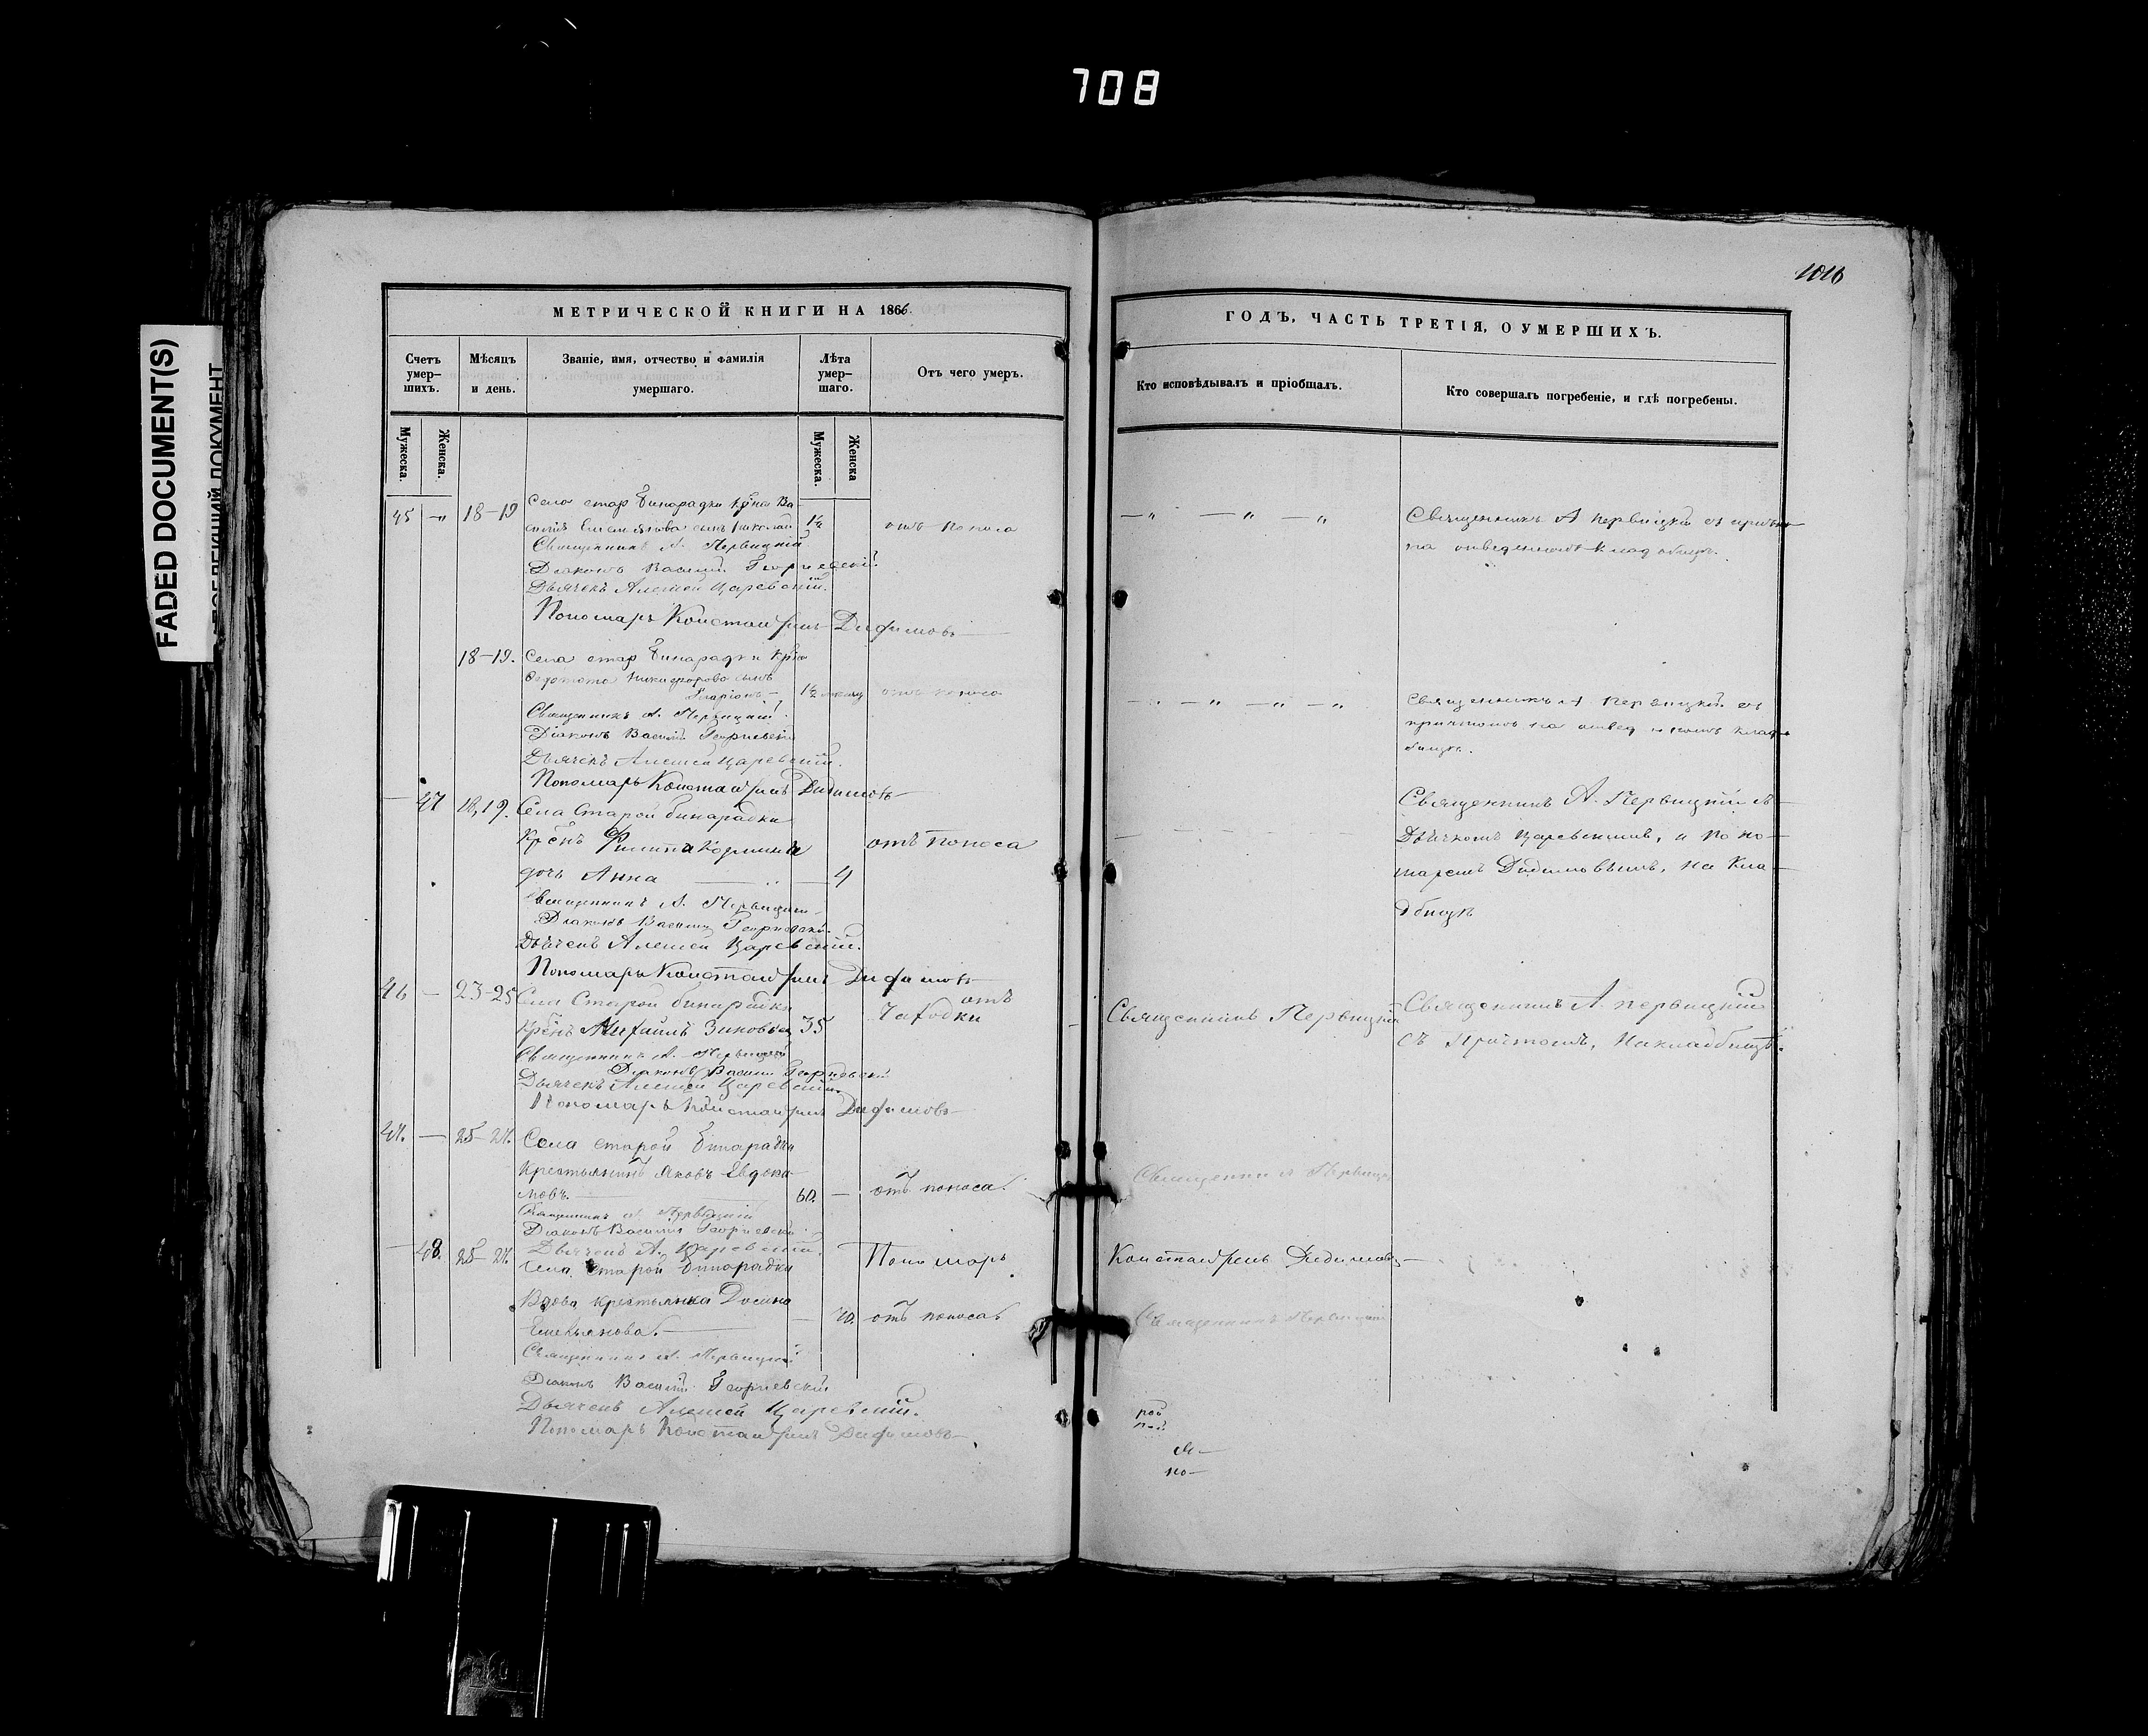 708
FADED DOCUMENT(S)
1016
МЕТРИЧЕСКОЙ КНИГИ НА 1866.
Счетъ умер–шихъ.
Мѣсяцъ и день.
Званіе, имя, отчество и фамилія умершаго.
Лѣта умер–шаго.
Отъ чего умеръ.
Мужеска.
Женска.
Мужеска.
Женска
45 –„ 18–19 Села стар Бинарадки Крѣна Ва-
силія Емельянова сынъ Николай 1½ отъ поноса
Священникъ А. Первицкій
Діаконъ Василій Георгіевскій.
Дьячекъ Алексей Царевскій.
Пономарь Константинъ Дидимовъ
18–19. Села стар Бинарадки Крѣна
Федота Никифорова сынъ
Иларіонъ – 1½ отъ поноса
Священникъ А. Первицкій
Діаконъ Василій Георгіевскій
Дьячекъ Алексей Царевскій.
Пономарь Константинъ Дидимовъ
– 47 18, 19. Села Старой бинарадки
Крѣнъ Филипа
дочь Анна – 4 отъ поноса
Священникъ А. Первицкій
Діаконъ Василій Георгіевскій
Дьячекъ Алексей Царевскій.
Пономарь Константинъ Дидимовъ
46 – 23–25 Села Старой бинарадки отъ
Крѣнъ Михаилъ Зиновьев 35 Чаходки
Священникъ А. Первицкій
Діаконъ Василій Георгіевскій
Дьячекъ Алексей Царевскій
Пономарь Константинъ Дидимовъ
47. – 25–27. Села старой Бинарадки
Крестьянинъ Яковъ Евдоки-
мовъ. 60. – отъ поноса.
Священникъ А. Первицкій
Діаконъ Василій Георгіевскій
Дьячекъ А. Царевскій.
– 48. 25–27. Села Старой Бинарадки Пономарь
Вдова крестьянка
Емельянова. – 70. отъ поноса
Священникъ А. Первицкій
Діаконъ Василій Георгіевскій
Дьячекъ Алексей Царевскій.
Пономарь Константинъ Дидимовъ
ГОДЪ, ЧАСТЬ ТРЕТІЯ, О УМЕРШИХЪ.
Кто исповѣдывалъ и пріобщалъ.
Кто совершалъ погребеніе, и гдѣ погребены.
–„ –„ –„
Священникъ А Первицкій съ
на отведенномъ кладбищѣ.
–„ –„ –„ –„
Священникъ А Первицкій съ
причтомъ на отведенномъ клад-
бищѣ.
Священникъ А. Первицкій съ
Дьячкомъ Царевскимъ, и Поно-
маремъ Дидимовымъ, на Кла-
дбищѣ
Священникъ Первицкій
Священникъ А. Первицкій
съ Причтомъ, На кладбищѣ.
Священникъ А Первицкій
Константинъ Дидимовъ
Священникъ Первицкій
рой
но-